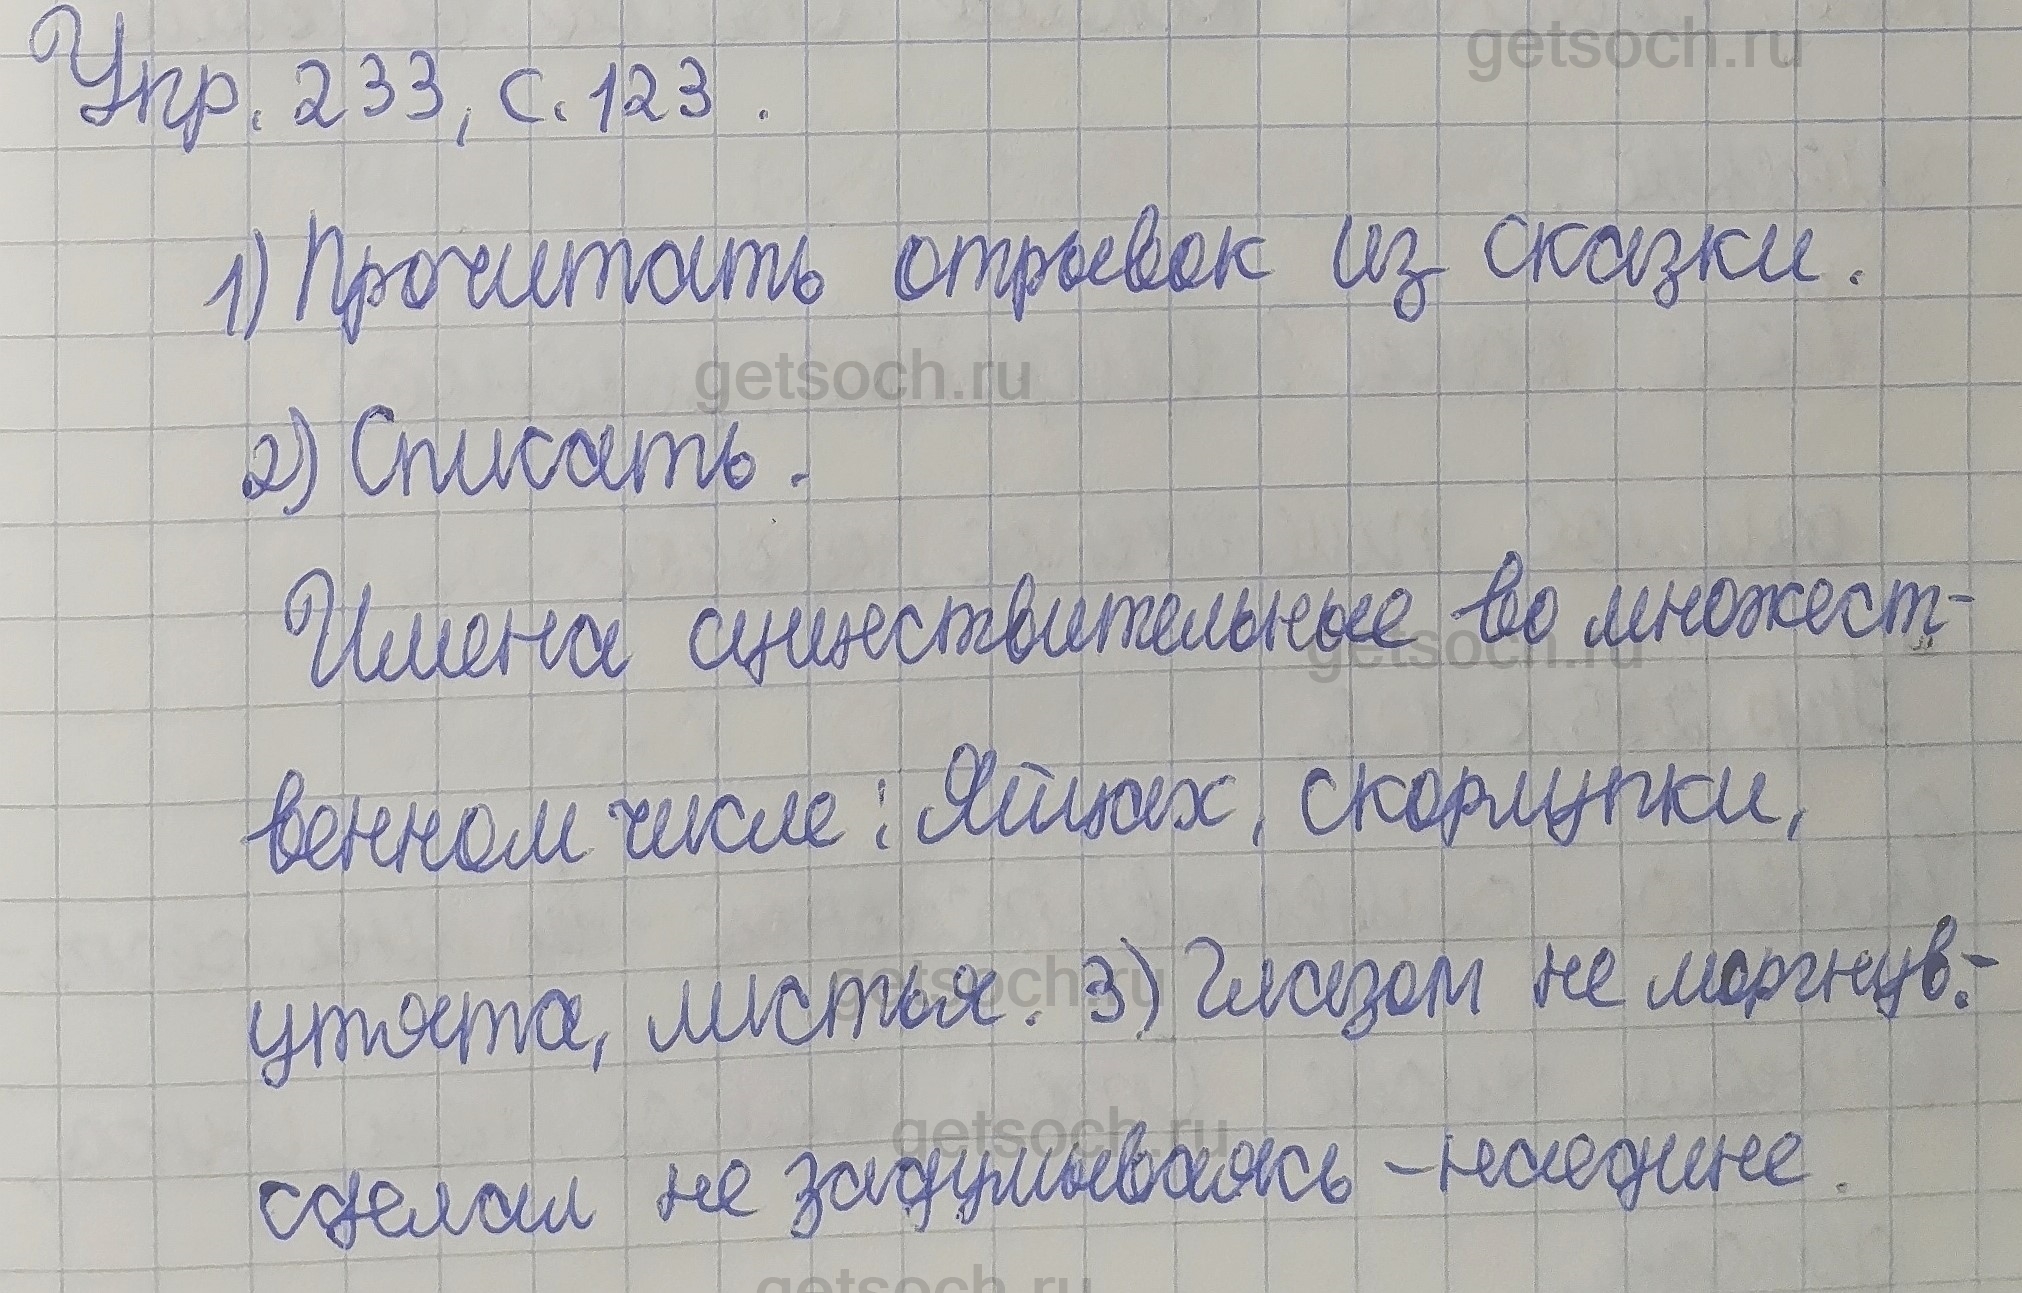 getsoch.ru
Упр. 233, с. 123.
1) Прочитать отрывок из сказки.
getsoch.ru
2) Списать.
Имена существительные во множест-
getsoch.ru
венном числе: Яйцах, скорлупки,
утята, листья. 3) Глазом не моргнув:-
getsoch.ru
getsoch.ru
сделал не задумываясь - наедине.
getsoch.ru